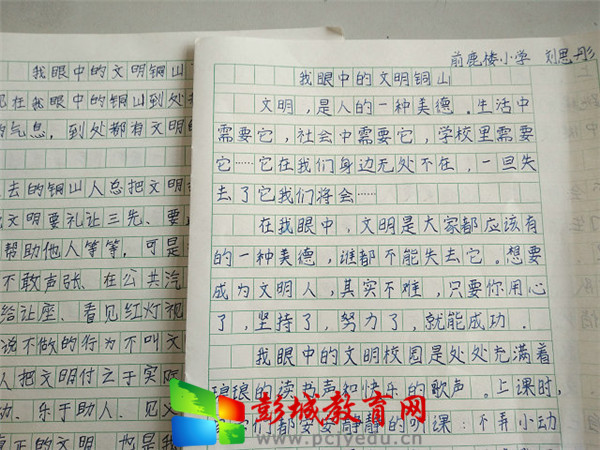 我眼中的文明铜山
在我眼中的铜山到处
的气息,到处都有文明的
去的铜山人总把文明
文明要礼让三先、要
帮助他人等等,可是
不敢声张、在公共汽
给让座、看见红灯视
说不做的行为不叫文
人把文明付之于实际
动、乐于助人、见义
真正的文明,也是我
前鹿楼小学 刘思彤
我眼中的文明铜山
文明,是人的一种美德。生活中
需要它,社会中需要它,学校里需要
它……它在我们身边无处不在,一旦失
去了它我们将会……
在我眼中,文明是大家都应该有
的一种美德,谁都不能失去它。想要
成为文明人,其实不难,只要你用心
了,坚持了,努力了,就能成功.
我眼中的文明校园是处处充满着
琅琅的读书声和快乐的歌声。上课时,
同学们都安安静静的听课:不弄小动
彭城教育网
www.pcjyedu.cn